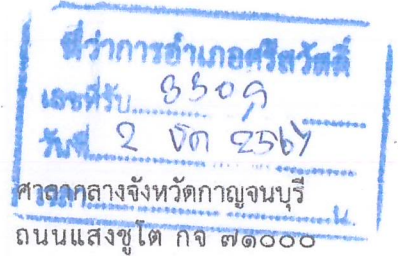 ที่ว่าการอำเภอศรีสวัสดิ์
เลขที่รับ
วันที่ 2 ตค 2567
ศาลากลางจังหวัดกาญจนบุรี
น.
ถนนแสงชูโต กจ ๗๑๐๐๐